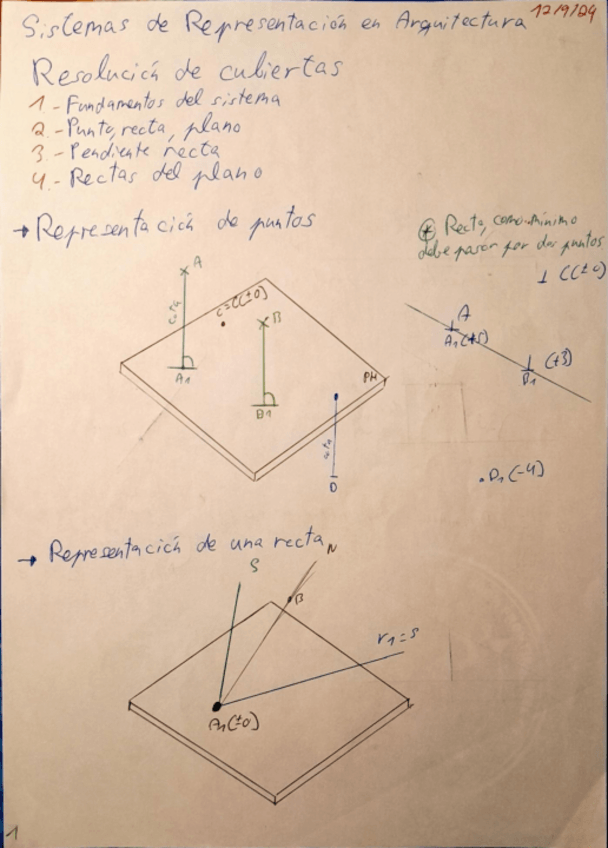 12/9/24
Sistemas de Representación en Arquitectura
Resolución de cubiertas
1.-Fundamentos del sistema
2.-Punto, recta, plano
3.-Pendiente recta
4.-Rectas del plano
→ Representación de puntos
* Recta, como mínimo
debe pasar por dos puntos
⊥ C(±0)
A
cota
C=C(±0)
B
A
A1(+5)
A1
B1
PH
B1 (+3)
cota
D
.D1(-4)
→ Representación de una recta
N
S
B
r1=s
A1(±0)
1